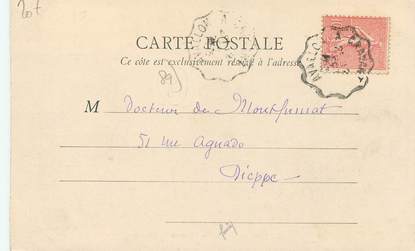 20f
CARTE POSTALE
Ce côté est exclusivement réservé à l'adresse
89)
M Docteur de
51 rue Aguado
Dieppe
AVALLON